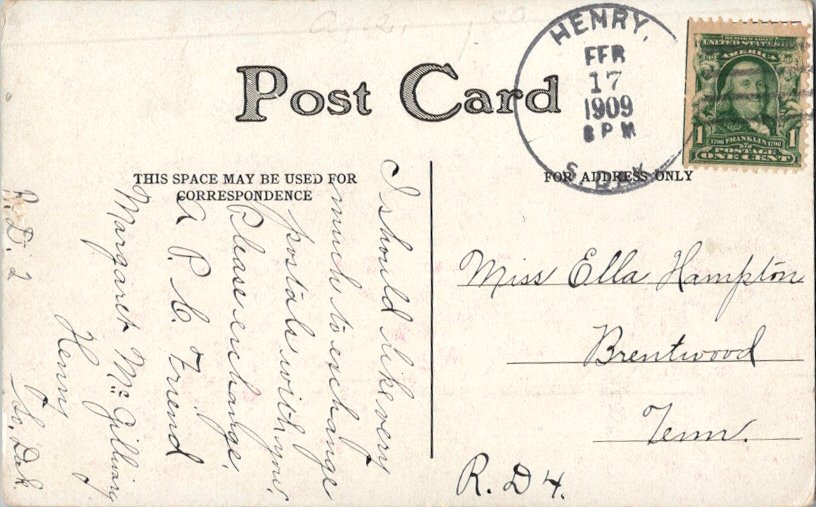 Post Card
THIS SPACE MAY BE USED FOR
CORRESPONDENCE
FOR ADDRESS ONLY
HENRY,
FEB
17
1909
8 PM
S. DAK.
UNITED STATES OF
AMERICA
1 FRANKLIN 1
POSTAGE
ONE CENT
I should like very
much to exchange
postals with you.
Please exchange.
A P. C. Friend
Margaret McGillivray
Henry
So. Dak.
R. D. 2
Miss Ella Hampton
Brentwood
Tenn.
R. D 4.